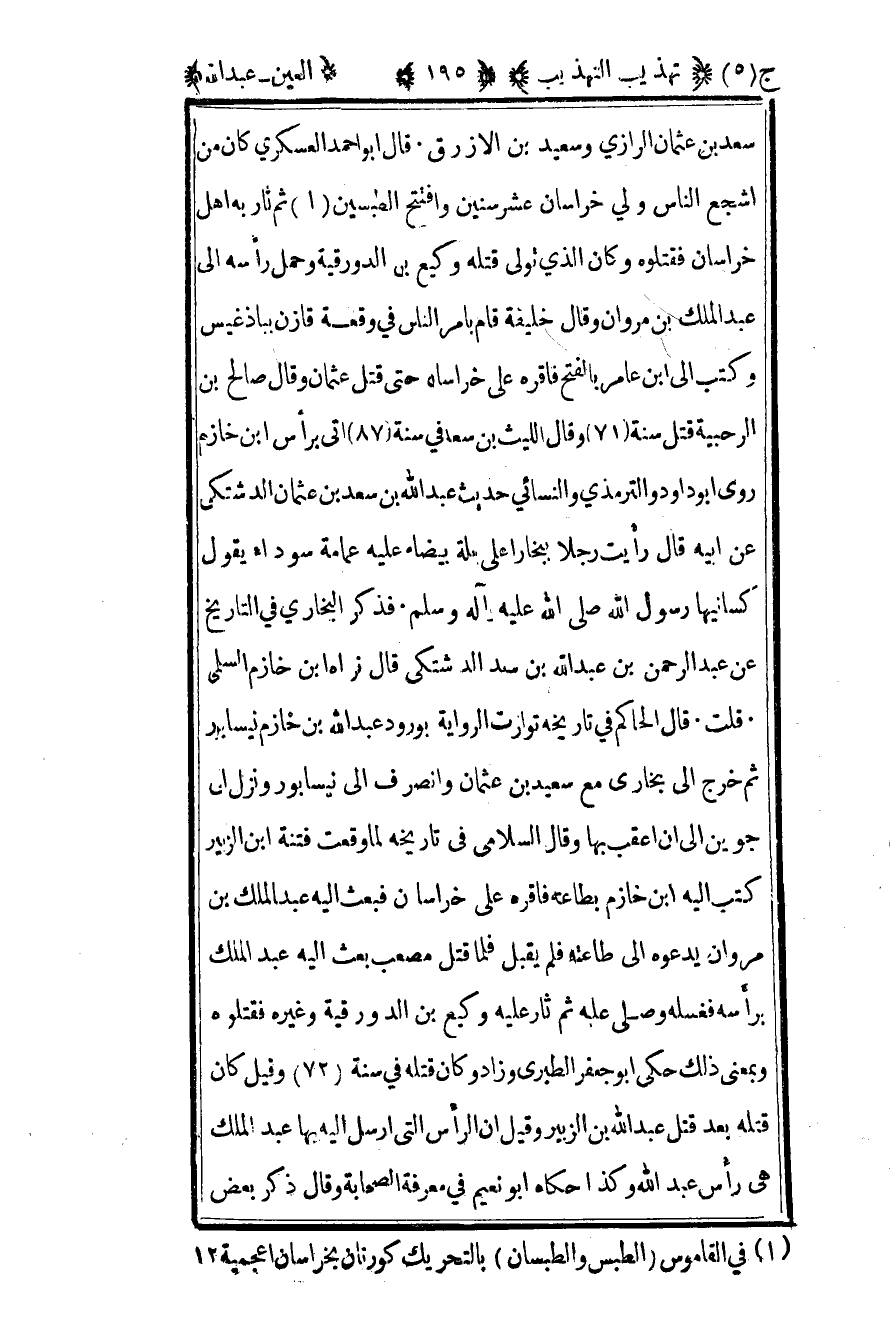 ج(٥) ﴿ تهذيب التهذيب ﴾ ﴿ ١٩٥ ﴾ ﴿ العين-عبدالله ﴾
سعد بن عثمان الرازي وسعيد بن الازرق · قال ابو احمد العسكري كان من
اشجع الناس ولي خراسان عشر سنين وافتتح الطبسين (١) ثم ثار به اهل
خراسان فقتلوه وكان الذي تولى قتله وكيع بن الدورقية وحمل رأسه الى
عبدالملك بن مروان وقال خليفة قام بامر الناس في وقعة قازن بباذغيس
وكتب الى ابن عامر بالفتح فاقره على خراسان حتى قتل عثمان وقال صالح بن
الرحبية قتل سنة (٧١) وقال الليث بن سعد في سنة (٨٧) اتى برأس ابن خازم
روى ابوداود والترمذي والنسائي حديث عبدالله بن سعد بن عثمان الدشتكى
عن ابيه قال رأيت رجلا ببخارا على بغلة بيضاء عليه عمامة سوداء يقول
كسانيها رسول الله صلى الله عليه وآله وسلم · فذكر البخاري في التاريخ
عن عبدالرحمن بن عبدالله بن سعد الدشتكى قال نراه ابن خازم السلمى
· قلت · قال الحاكم في تاريخه تواترت الرواية بورود عبدالله بن خازم نيسابور
ثم خرج الى بخارى مع سعيد بن عثمان وانصرف الى نيسابور ونزل الى
جوين الى ان اعقب بها وقال السلامى فى تاريخه لما وقعت فتنة ابن الزبير
كتب اليه ابن خازم بطاعته فاقره على خراسان فبعث اليه عبدالملك بن
مروان يدعوه الى طاعته فلم يقبل فلما قتل مصعب بعث اليه عبد الملك
برأسه فغسله وصلى عليه ثم ثار عليه وكيع بن الدورقية وغيره فقتلوه
وبمعنى ذلك حكى ابو جعفر الطبرى وزاد وكان قتله في سنة (٧٢) وقيل كان
قتله بعد قتل عبدالله بن الزبير وقيل ان الرأس التى ارسل اليه بها عبد الملك
هى رأس عبد الله وكذا حكاه ابو نعيم في معرفة الصحابة وقال ذكر بعض
(١) في القاموس (الطبس والطبسان) بالتحريك كورتان بخراسان اعجمية ١٢